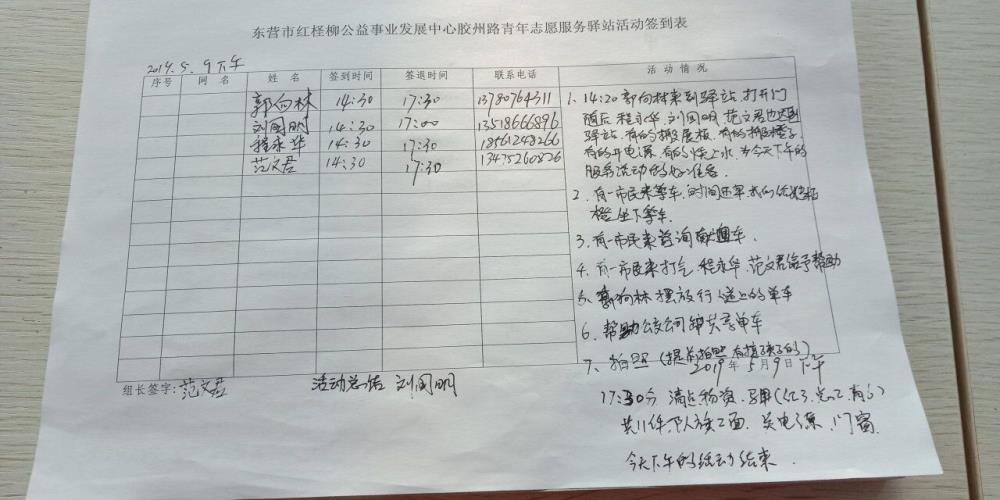 东营市红柽柳公益事业发展中心胶州路青年志愿服务驿站活动签到表
2019.5.9下午
序号 网名 姓名 签到时间 签退时间 联系电话 活动情况
郭向林 14:30 17:30 13780764311
刘国明 14:30 17:00 13518666896
程永华 14:30 17:30 18561248266
范文君 14:30 17:30 13475260826
1、14:20郭向林来到驿站,打开门
随后程永华、刘国明、范文君也达到
驿站,有的搬展板、有的搬椅子、
有的开电源、有的烧上水,为今天下午的
服务活动的好准备
2、有一市民来等车,时间还早我们给她
凳坐下等车.
3、有一市民来咨询 车.
4、有一市民来打气,程永华、范文君给予帮助
5、郭向林摆放行人道上的单车
6、帮助公交公司 共享单车
7、拍照(提前拍照 )
2019年5月9日下午
17:30分 清点物资、
共11件, 2面、关电源、门窗
今天下午的活动结束.
组长签字:范文君 活动总结 刘国明